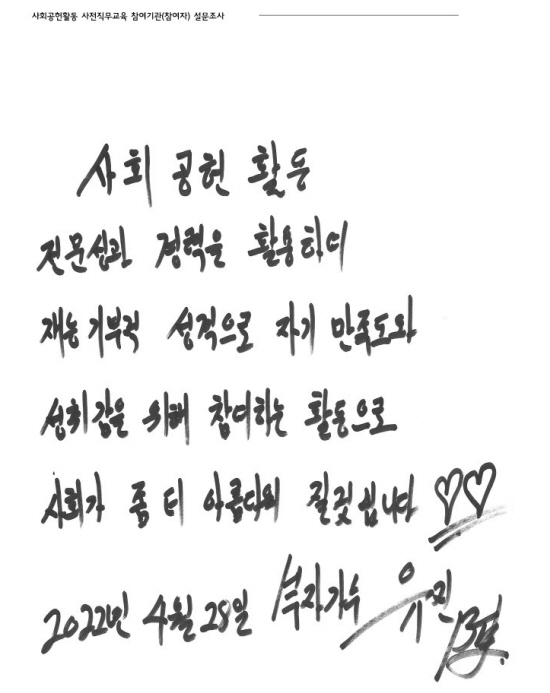 사회공헌활동 사전직무교육 참여기관(참여자) 설문조사
사회 공헌 활동
전문성과 경력을 활용하여
재능기부적 성격으로 자기 만족도와
성취감을 위해 참여하는 활동으로
사회가 좀 더 아름다워 질것 입니다 ♡♡
2022년 4월 28일 부자가수 유진